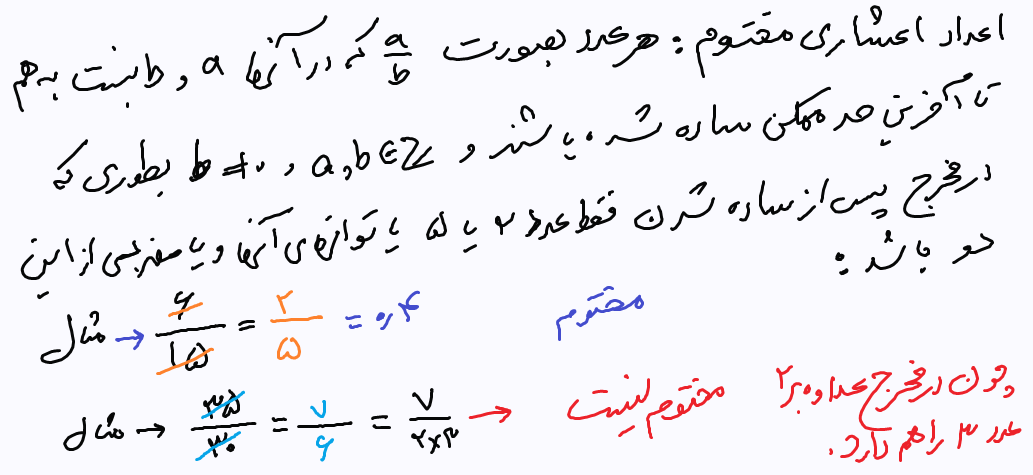 اعداد اعشاری مختوم : هر عدد بصورت a/b که در آن‌ها a و b نسبت به هم
تا آخرین حد ممکن ساده شده باشند و a,b∈Z و b≠۰ بطوری که
در مخرج پس از ساده شدن فقط عدد ۲ یا ۵ یا توان‌های آن‌ها و یا مضربی از این
دو باشد :
مثال → ۶/۱۵ = ۲/۵ = ۰٫۴ مختوم
مثال → ۳۵/۳۰ = ۷/۶ = ۷/۲×۳ → مختوم نیست چون در مخرج علاوه بر ۲
عدد ۳ را هم دارد.